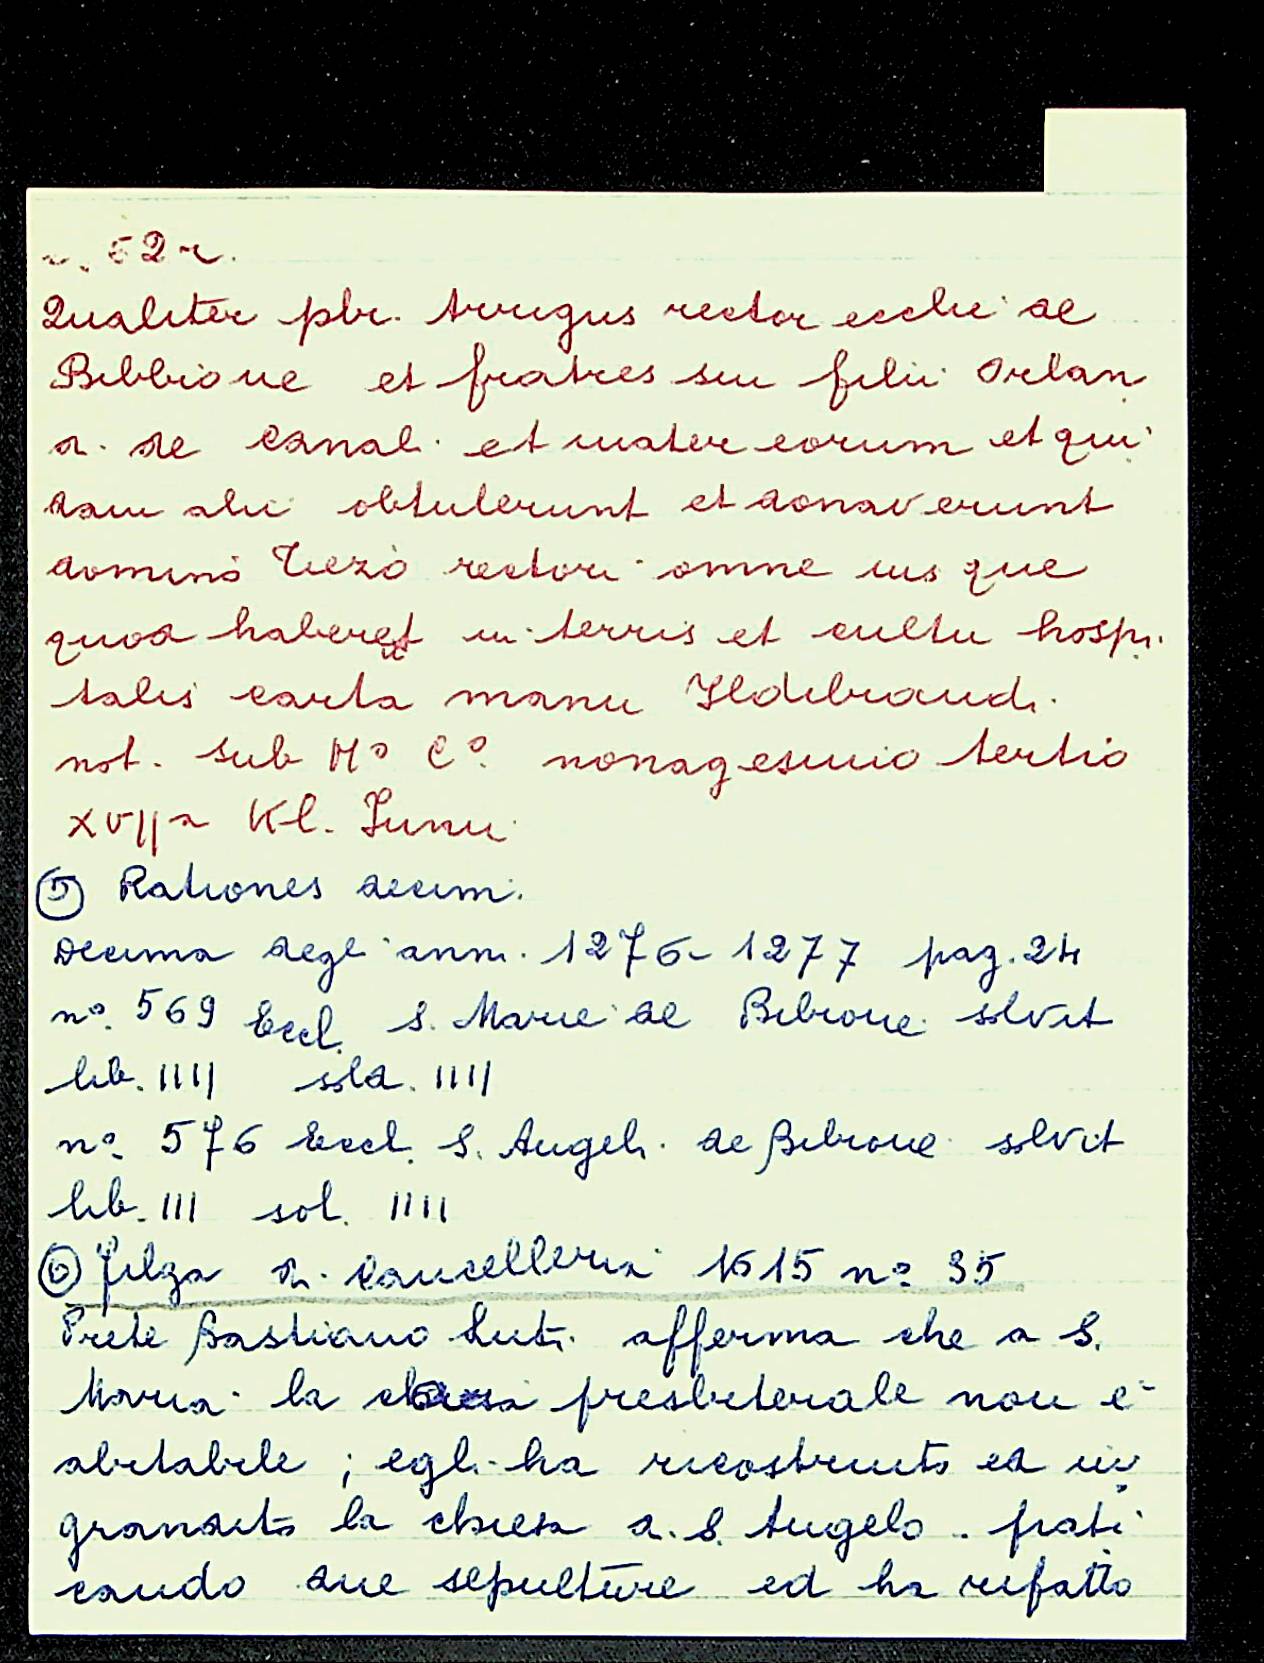 c. 52 r.
Qualiter pbr. Arrigus rector ecclie de
Bibbione et fratres sui filii Orlan
d. de Canal. et mater eorum et qui
dam alii obtulerunt et donaverunt
domino Tiezo rectori omne ius que
quod haberet in terris et cultu hospi
talis carta manu Ildibrandi
not. sub M° C° nonagesimo tertio
XVII a Kl. Junii
⑤ Rationes decim.
Decima degli anni 1276-1277 pag. 24
n°. 569 Eccl. S. Marie de Bibione solvit
lib. IIII sold. IIII
n°. 576 Eccl. S. Angeli de Bibione solvit
lib. III sol. IIII
⑥ Filza di Cancelleria 1615 n° 35
Prete Bastiano Luti afferma che a S.
Maria la chiesa presbiterale non e'
abitabile ; egli ha ricostruito ed in
grandito la chiesa d. S. Angelo . prati
cando due sepolture ed ha rifatto